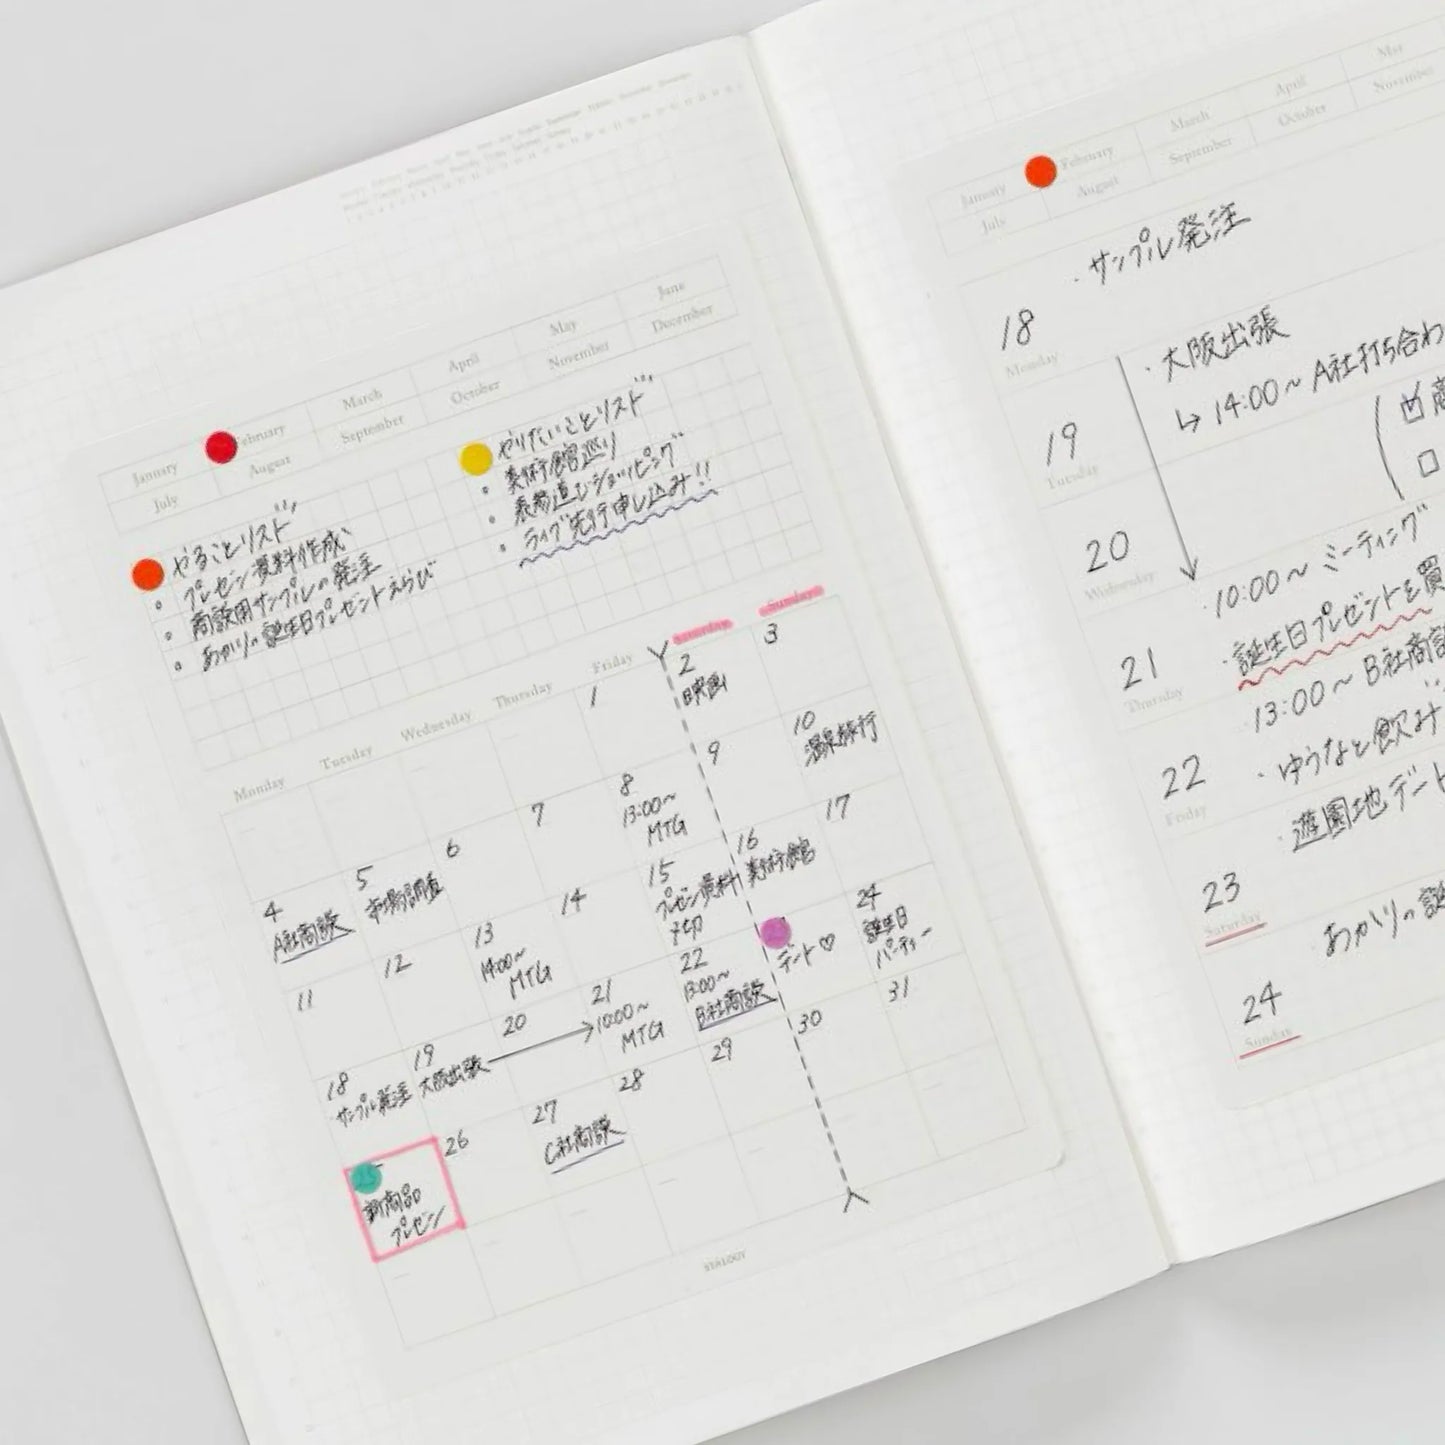 January
February
March
April
May
June
July
August
September
October
November
December
やることリスト
プレゼン資料作成
商談用サンプルの発注
あかりの誕生日プレゼントえらび
やりたいことリスト
美術館巡り
表参道でショッピング
ライブ先行申し込み!!
Monday
Tuesday
Wednesday
Thursday
Friday
Saturday
Sunday
1
2
映画
3
4
A社商談
5
市場調査
6
7
8
13:00〜
MTG
9
10
温泉旅行
11
12
13
14:00〜
MTG
14
15
プレゼン資料
〆切
16
美術館
17
18
サンプル発注
19
大阪出張
20
21
10:00〜
MTG
22
13:00〜
B社商談
デート♡
24
誕生日
パーティー
25
新商品
プレゼン
26
27
C社商談
28
29
30
31
STALOGY
January
February
March
April
July
August
September
October
November
18
Monday
・サンプル発注
19
Tuesday
・大阪出張
↳ 14:00〜 A社打ち合わ
20
Wednesday
21
Thursday
・10:00〜 ミーティング
・誕生日プレゼントを買
22
Friday
13:00〜 B社商談
・ゆうなと飲み
23
Saturday
・遊園地デート
24
Sunday
あかりの誕